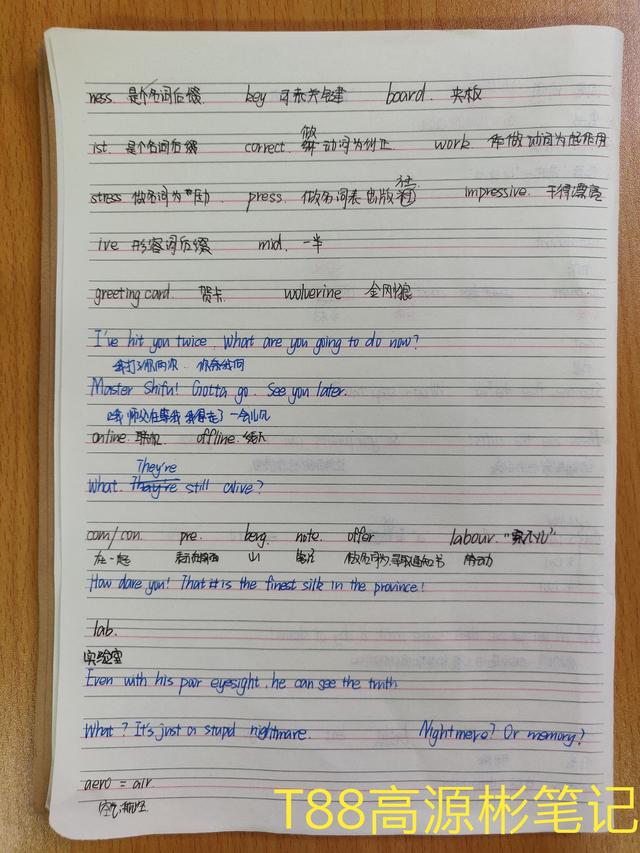 ness. 是个名词后缀. key 可表关键 board. 夹板
ist. 是个名词后缀 correct. 做动词为纠正 work 作做动词为起作用
stress 做名词为压力. press. 做名词表出版社 impressive. 干得漂亮
ive 形容词后缀 mid. 一半
greeting card. 贺卡 wolverine 金刚狼
I've hit you twice. What are you going to do now?
我打了你两次
Master Shifu! Gotta go. See you later.
哦 师父在等我 我得走了 一会儿见
online. 联机 offline. 线下
What. They're still alive?
com/con. pre. berg. note. offer labour. "累不儿"
在一起 山 笔记 做名词为录取通知书 劳动
How dare you! That is the finest silk in the province!
lab.
实验室
Even with his poor eyesight. he can see the truth
What? It's just a stupid nightmare. Nightmere? Or memory?
aero = air.
空气
T88高源彬笔记